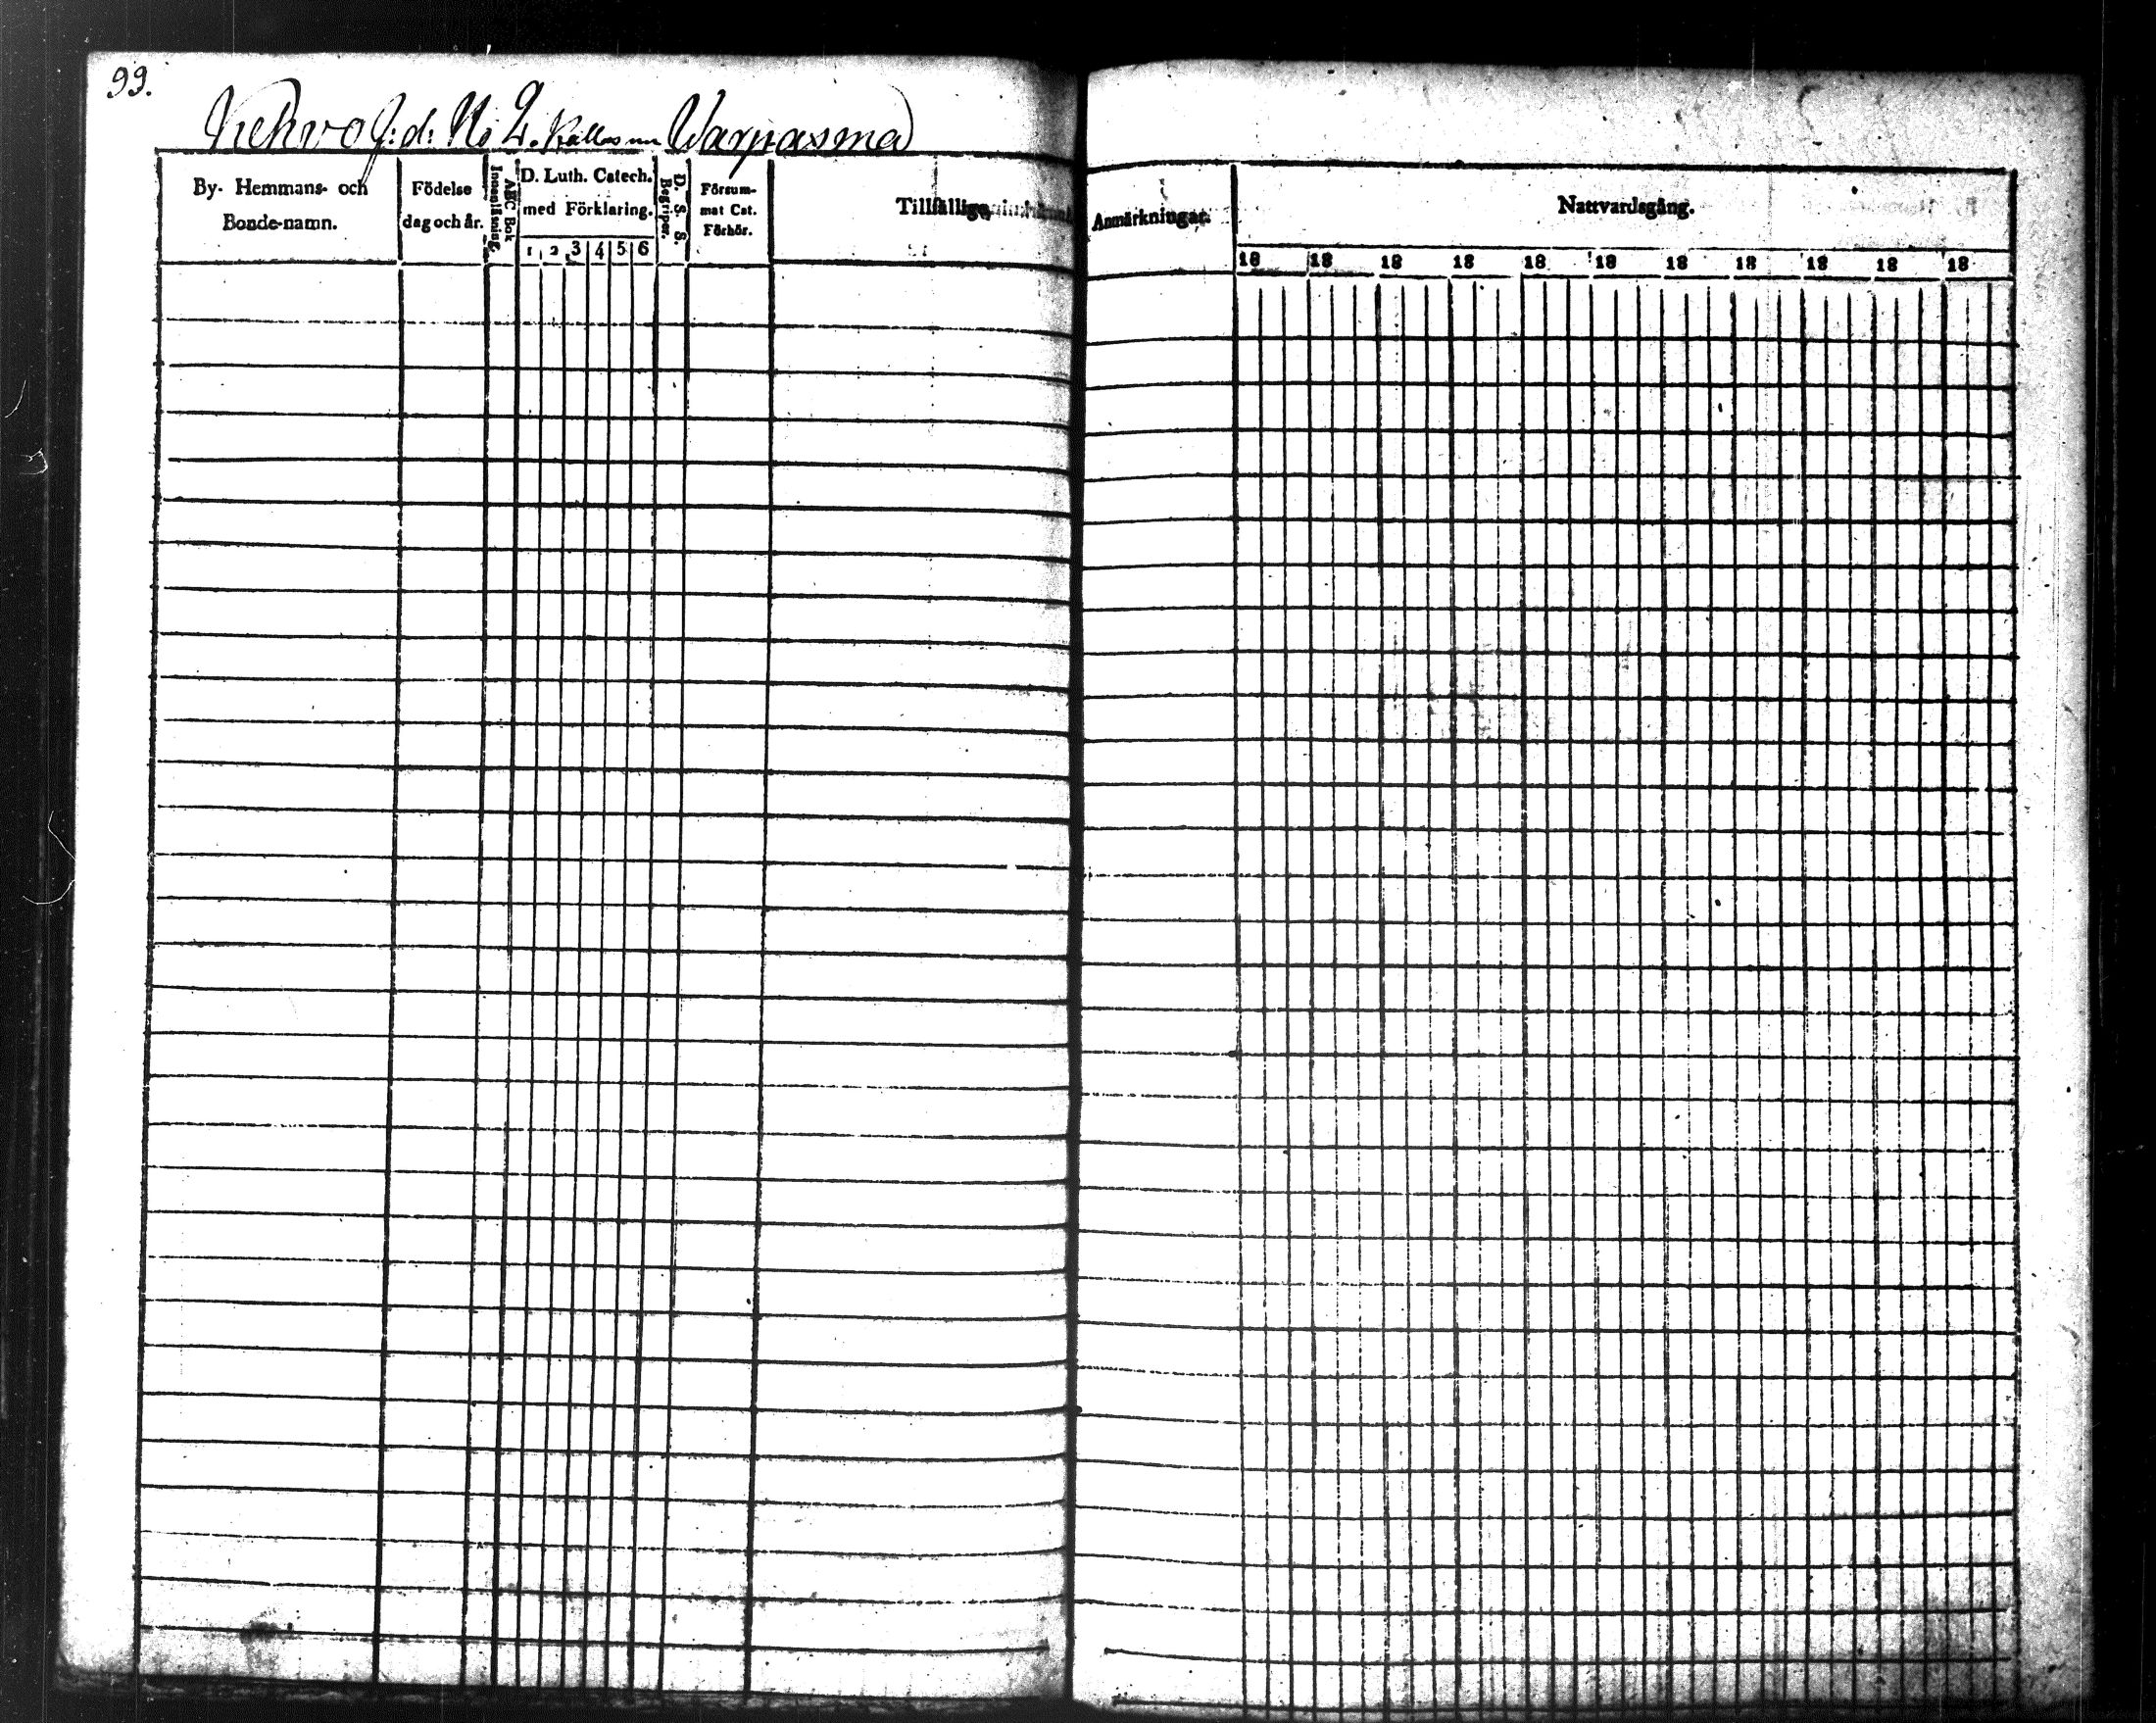 99.
Vehvo f: d: No 2. kallas nu Warpasma
By- Hemmans- och
Bonde-namn.
Födelse
dag och år.
Innanläsning.
ABC Bok
D. Luth. Catech.
med Förklaring.
1 2 3 4 5 6
D. S. S.
Begriper.
Försum-
mat Cat.
Förhör.
Tillfällige
Anmärkningar.
Nattvardsgång.
18 18 18 18 18 18 18 18 18 18 18